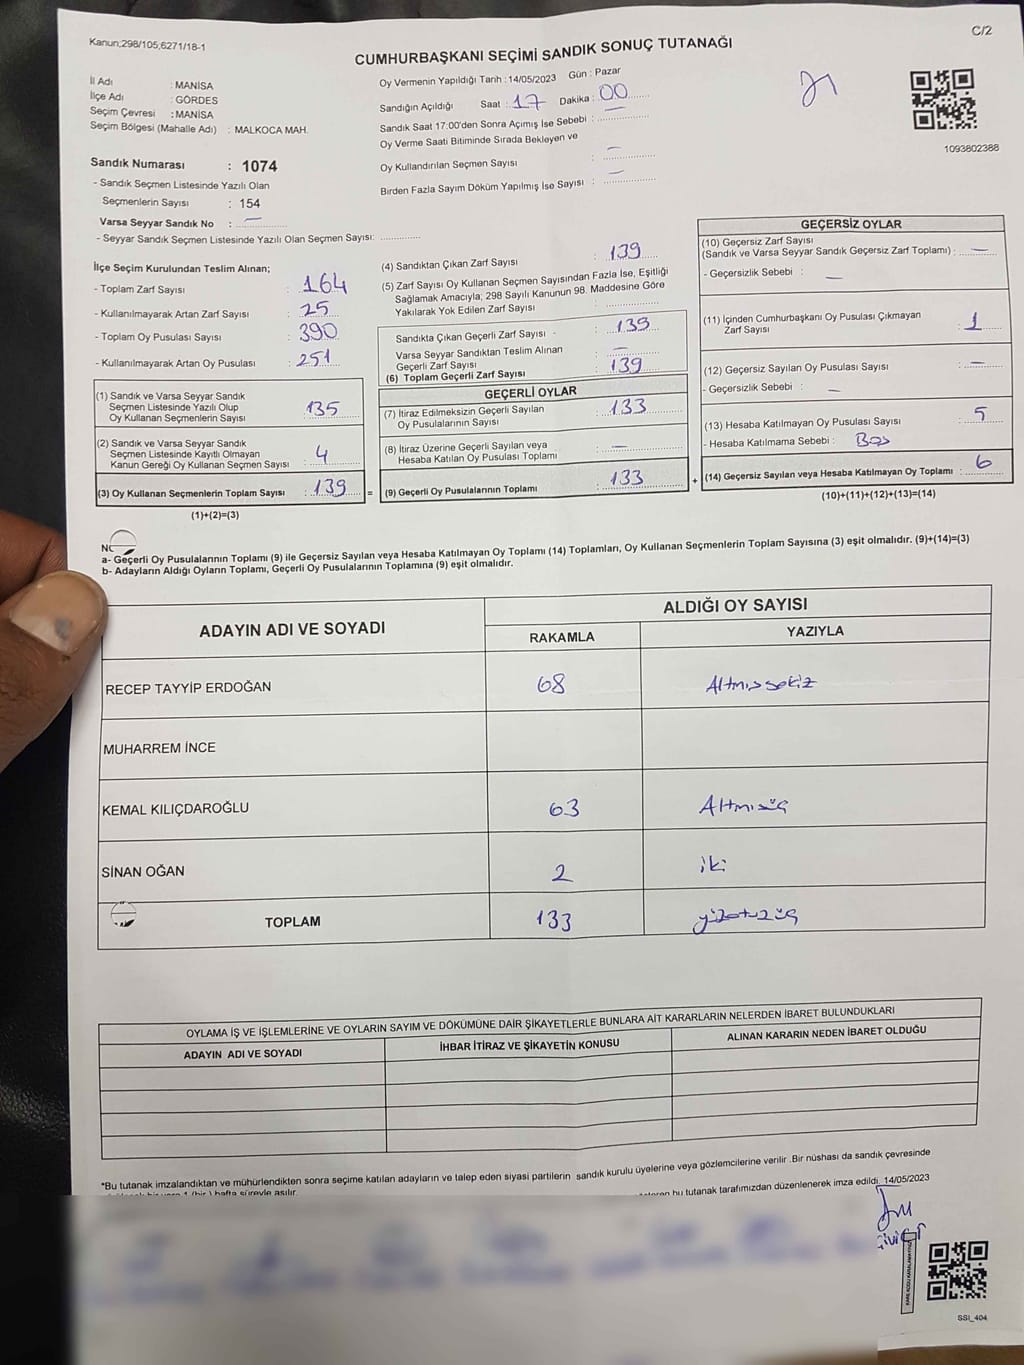 Kanun;298/105,6271/18-1
C/2
CUMHURBAŞKANI SEÇİMİ SANDIK SONUÇ TUTANAĞI
İl Adı : MANİSA
İlçe Adı : GÖRDES
Seçim Çevresi : MANİSA
Seçim Bölgesi (Mahalle Adı) : MALKOCA MAH.
Sandık Numarası : 1074
- Sandık Seçmen Listesinde Yazılı Olan
Seçmenlerin Sayısı : 154
Varsa Seyyar Sandık No : —
- Seyyar Sandık Seçmen Listesinde Yazılı Olan Seçmen Sayısı:
Oy Vermenin Yapıldığı Tarih : 14/05/2023 Gün : Pazar
Sandığın Açıldığı Saat : 17 Dakika : 00
Sandık Saat 17:00'den Sonra Açımış İse Sebebi : —
Oy Verme Saati Bitiminde Sırada Bekleyen ve
Oy Kullandırılan Seçmen Sayısı : —
Birden Fazla Sayım Döküm Yapılmış İse Sayısı : —
1093802388
İlçe Seçim Kurulundan Teslim Alınan;
- Toplam Zarf Sayısı : 164
- Kullanılmayarak Artan Zarf Sayısı : 25
- Toplam Oy Pusulası Sayısı : 390
- Kullanılmayarak Artan Oy Pusulası : 251
(1) Sandık ve Varsa Seyyar Sandık
Seçmen Listesinde Yazılı Olup
Oy Kullanan Seçmenlerin Sayısı : 135
(2) Sandık ve Varsa Seyyar Sandık
Seçmen Listesinde Kayıtlı Olmayan
Kanun Gereği Oy Kullanan Seçmen Sayısı : 4
(3) Oy Kullanan Seçmenlerin Toplam Sayısı : 139 =
(1)+(2)=(3)
(4) Sandıktan Çıkan Zarf Sayısı : 139
(5) Zarf Sayısı Oy Kullanan Seçmen Sayısından Fazla İse, Eşitliği
Sağlamak Amacıyla; 298 Sayılı Kanunun 98. Maddesine Göre
Yakılarak Yok Edilen Zarf Sayısı :
Sandıkta Çıkan Geçerli Zarf Sayısı - : 139
Varsa Seyyar Sandıktan Teslim Alınan
Geçerli Zarf Sayısı : —
(6) Toplam Geçerli Zarf Sayısı : 139
GEÇERLİ OYLAR
(7) İtiraz Edilmeksizin Geçerli Sayılan
Oy Pusulalarının Sayısı : 133
(8) İtiraz Üzerine Geçerli Sayılan veya
Hesaba Katılan Oy Pusulası Toplamı : —
(9) Geçerli Oy Pusulalarının Toplamı : 133 +
GEÇERSİZ OYLAR
(10) Geçersiz Zarf Sayısı
(Sandık ve Varsa Seyyar Sandık Geçersiz Zarf Toplamı) : —
- Geçersizlik Sebebi : —
(11) İçinden Cumhurbaşkanı Oy Pusulası Çıkmayan
Zarf Sayısı : 1
(12) Geçersiz Sayılan Oy Pusulası Sayısı : —
- Geçersizlik Sebebi : —
(13) Hesaba Katılmayan Oy Pusulası Sayısı : 5
- Hesaba Katılmama Sebebi : Boş
(14) Geçersiz Sayılan veya Hesaba Katılmayan Oy Toplamı : 6
(10)+(11)+(12)+(13)=(14)
a- Geçerli Oy Pusulalarının Toplamı (9) ile Geçersiz Sayılan veya Hesaba Katılmayan Oy Toplamı (14) Toplamları, Oy Kullanan Seçmenlerin Toplam Sayısına (3) eşit olmalıdır. (9)+(14)=(3)
b- Adayların Aldığı Oyların Toplamı, Geçerli Oy Pusulalarının Toplamına (9) eşit olmalıdır.
ADAYIN ADI VE SOYADI
ALDIĞI OY SAYISI
RAKAMLA YAZIYLA
RECEP TAYYİP ERDOĞAN 68 Altmışsekiz
MUHARREM İNCE
KEMAL KILIÇDAROĞLU 63 Altmışüç
SİNAN OĞAN 2 iki
TOPLAM 133 yüzotuzüç
OYLAMA İŞ VE İŞLEMLERİNE VE OYLARIN SAYIM VE DÖKÜMÜNE DAİR ŞİKAYETLERLE BUNLARA AİT KARARLARIN NELERDEN İBARET BULUNDUKLARI
ADAYIN ADI VE SOYADI İHBAR İTİRAZ VE ŞİKAYETİN KONUSU ALINAN KARARIN NEDEN İBARET OLDUĞU
*Bu tutanak imzalandıktan ve mühürlendikten sonra seçime katılan adayların ve talep eden siyasi partilerin sandık kurulu üyelerine veya gözlemcilerine verilir .Bir nüshası da sandık çevresinde
1 (bir ) hafta süreyle asılır.
bu tutanak tarafımızdan düzenlenerek imza edildi. 14/05/2023
SSI_404